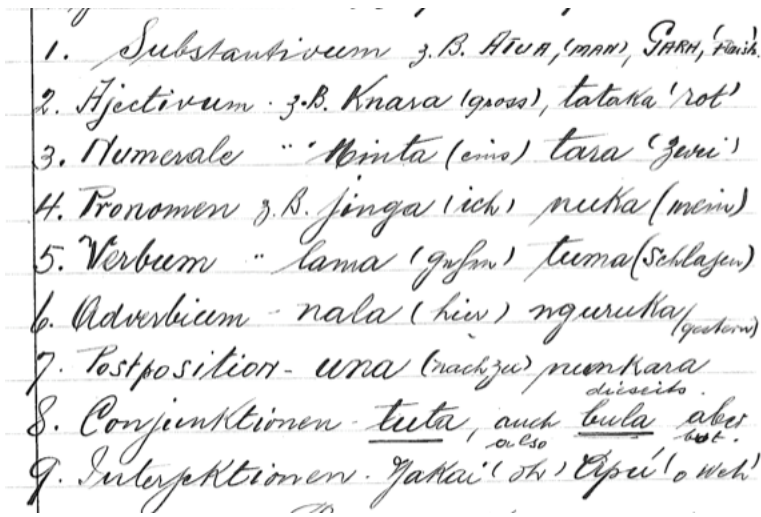 1. Substantivum z.B. ATUA, (MAN), GARA, 'Fleisch'.
2. Ajectivum - z.B. Knara (gross), tataka 'rot'
3. Numerale " " Ninta (eins) tara 'zwei'
4. Pronomen z.B. jinga (ich) nuka (mein)
5. Verbum " lama (gehen) tuma (Schlagen)
6. Adverbium - nala (hier) nguruka (gestern)
7. Postposition - una (nach zu) nunkara
diesseits.
8. Conjunktionen - tuta, auch bula aber
also but.
9. Interjektionen. Jakai 'oh' Apú! 'o weh'